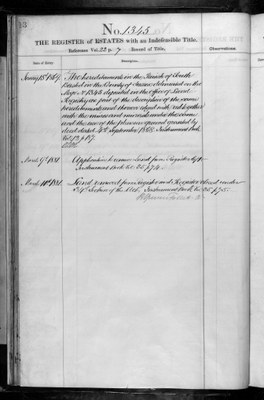 No. 1345
THE REGISTER of ESTATES with an Indefeasible Title.
Reference Vol. 22 p. 7. Record of Title.
Observations
Date of Entry.
Description.
The hereditaments in the Parish of South
in the County of Sussex delineated on the
Map No. 1345 deposited in the Office of Land
Registry as part of the description of the same
hereditaments and thereon edged with red together
with the mines and minerals under the same
and the use of the
deed dated 4th September 1868. Instrument Book
March 9th 1881
Application to remove Land from Register
Instrument Book Vol. 25 p. 74.
March 10th 1881
Land removed from Register and Register closed under
Section of the Act. Instrument Book Vol. 25 p. 75.